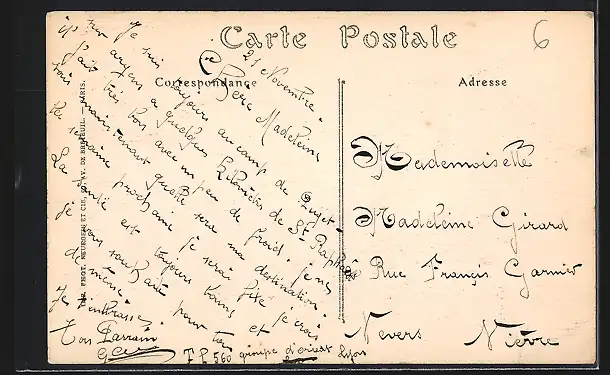 Carte Postale
Correspondance
Adresse
6
21 Novembre.
Chère Madeleine
Je suis toujours au camp de Puget-
sur argens a quelques kilomètres de St Raphaël
fait très bon avec un peu de froid. je ne
sais maintenant quelle sera ma destination.
La semaine prochaine je serai fixé je crois
La santé est toujours bonne et
je vous souhaite pour
de même.
Je t'embrasse.
Ton Parrain
T P 560 groupe d'orient Lyon
Mademoiselle
Madeleine Girard
Rue Françis Garnier
Nevers Nièvre
IMP. PHOT. NEURDEIN ET CIE, 52, AV. DE BRETEUIL. — PARIS.